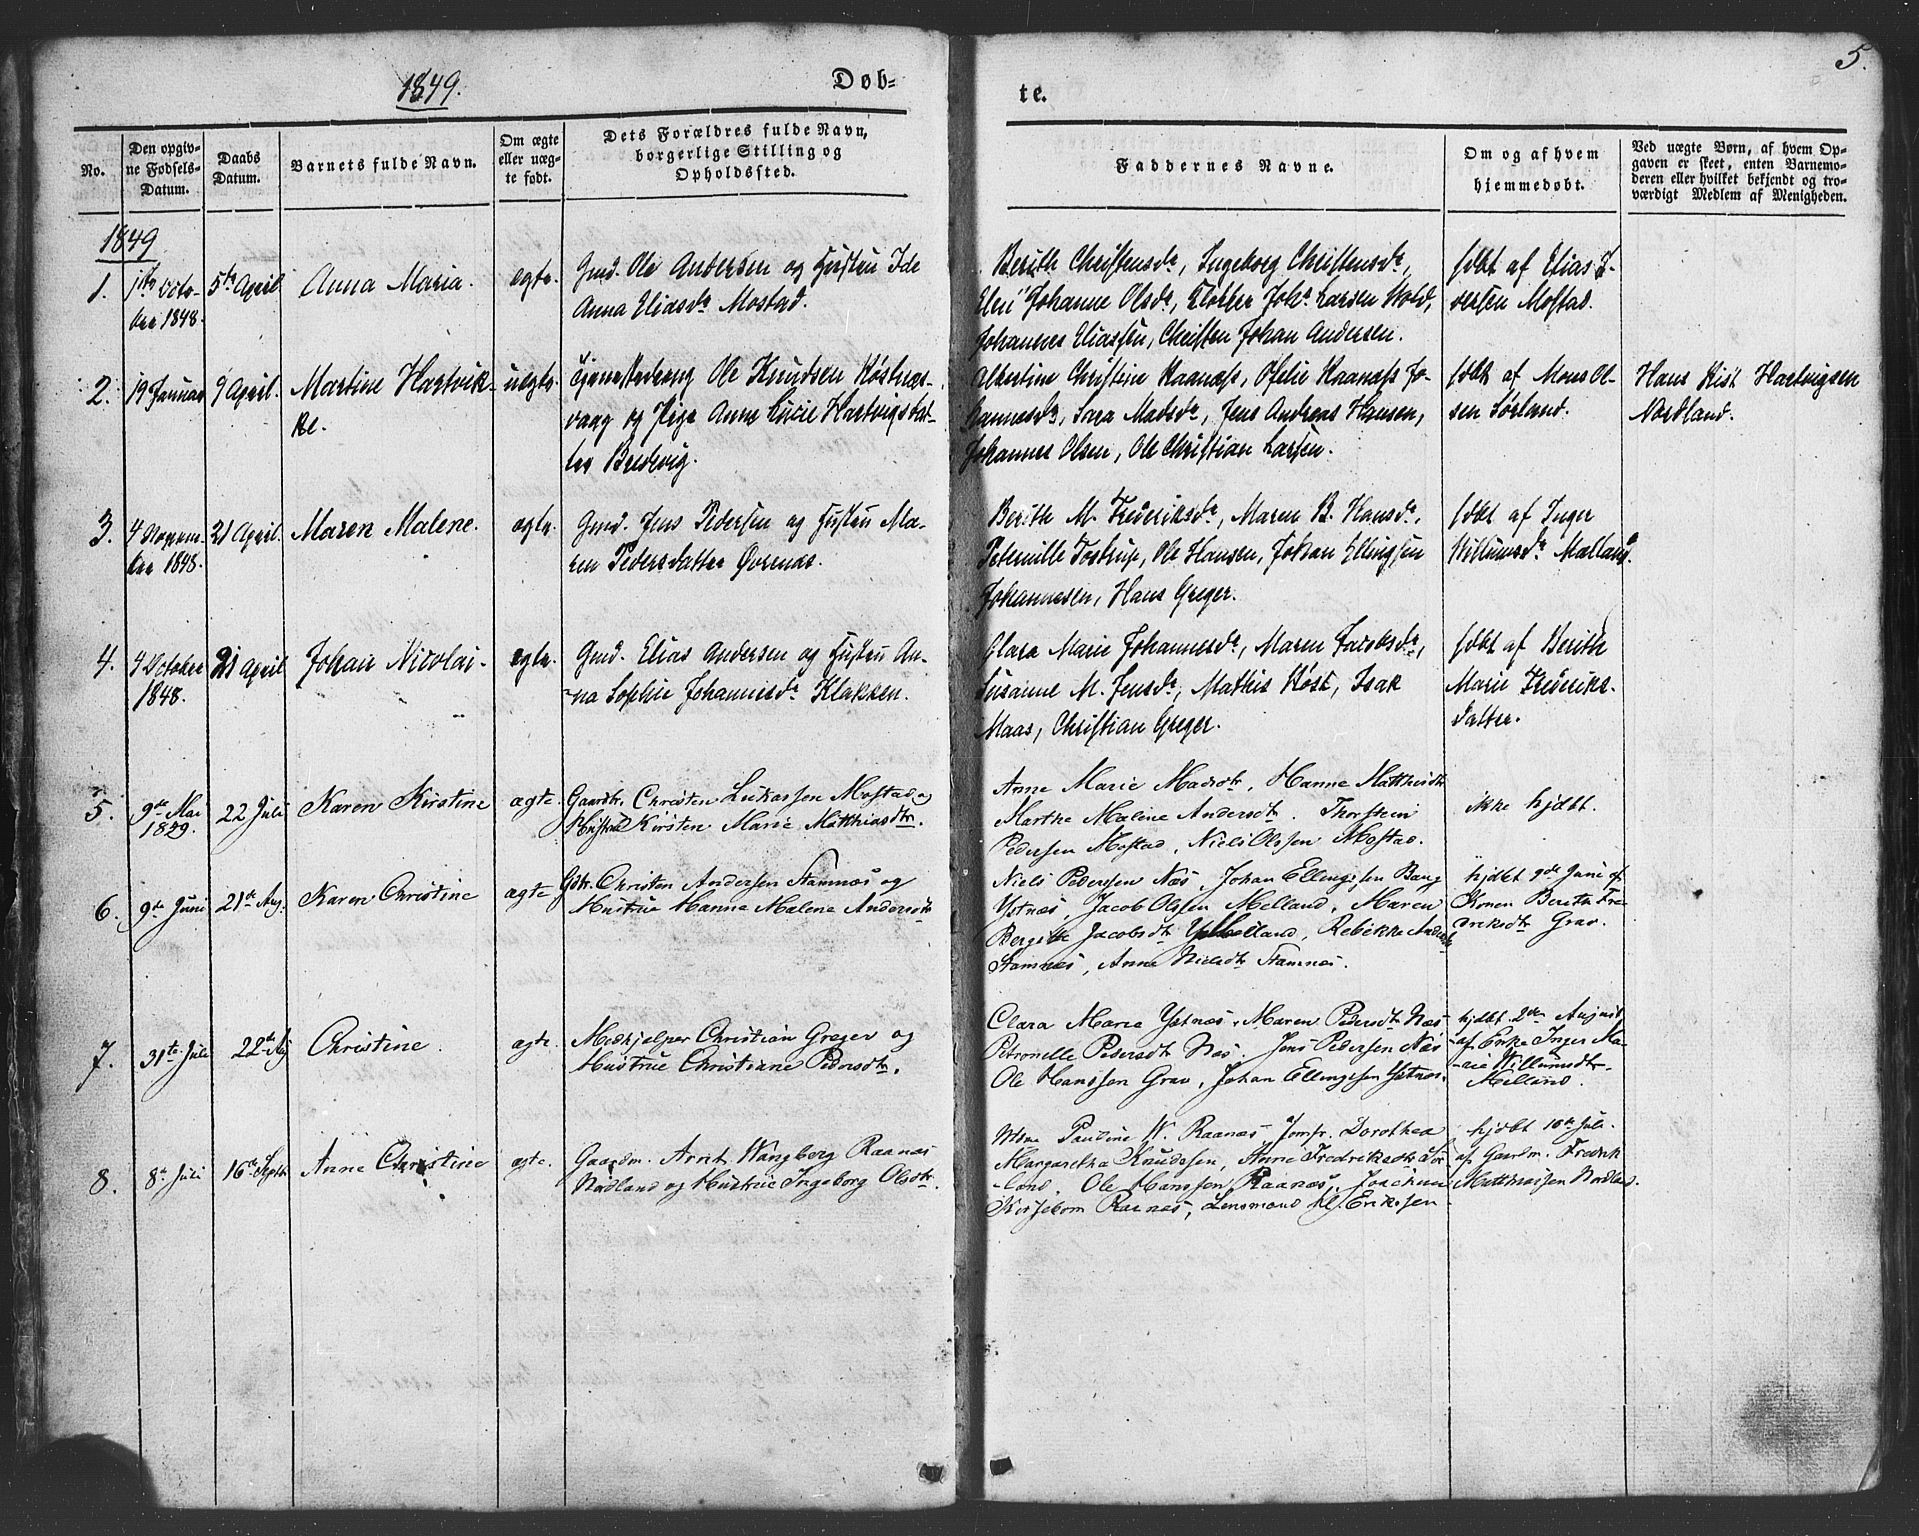 1849.
Døb-
te.
5.
No.
Den opgiv-
ne Fødsels-
Datum.
Daabs
Datum.
Barnets fulde Navn.
Om ægte
eller uæg-
te født.
Dets Forældres fulde Navn,
borgerlige Stilling og
Opholdssted.
Faddernes Navne.
Om og af hvem
hjemmedøbt.
Ved uægte Børn, af hvem Op-
gaven er skeet, enten Barnemo-
deren eller hvilket bekjendt og tro-
værdigt Medlem af Menigheden.
1849
1.
1ste Octo-
ber 1848.
5te April
Anna Maria.
ægte.
Gmd. Ole Andersen og Hustru Ide
Anna Eliasdr Mostad.
Berith Christensdr, Ingeborg Christensdr,
Johanne Olsdr, Klokker Johs Larsen Wold,
Johannes Eliassen, Christen Johan Andersen.
født af Elias I-
versen Mostad.
2.
19 Januar
9 April.
Martine Hartvik-
ke.
uægte
Tjenestedreng Ole Knudsen Røstnæs-
vaag og Pige Anne Lucie Hartvigsdat-
ter Bredvig.
Albertine Christine Raanæss, Ofelie Raanæss Jo-
hannesdr, Sara Madsdr, Jens Andreas Hansen,
Johannes Olsen, Ole Christian Larsen.
født af Mons Ol-
sen Sørland.
Hans Kist Hartvigsen
Nordland.
3.
4 Novem-
ber 1848.
21 April.
Maren Malene.
ægte.
Gmd. Jens Pedersen og Hustru Ma-
ren Pedersdatter Øvrenæs.
Berith M. Frederiksdr, Maren B. Hansdr,
Peternille Tostrup, Ole Hansen, Johan Ellingsen
Johannesen, Hans Greger.
født af Inger
Willumsdr Mælland.
4.
4 October
1848.
21 April
Johan Nicolai.
ægte.
Gmd. Elias Andersen og Hustru An-
na Sophie Johannesdr Klakken.
Clara Marie Johannesdr, Maren Jacobsdr,
Susanne M. Jensdr, Mathis Røst, Isak
Maas, Christian Greger.
født af Berith
Marie Frederiks-
datter.
5.
9de Mai
1849.
22 Juli
Karen Kirstine
ægte.
Gaardbr. Christen Lukassen Mostad og
Hustrue Kirsten Marie Matthiasdtr.
Anne Marie Madsdtr, Hanne Matthisdtr
Marthe Malene Andersdtr. Thorstein
Pedersen Mostad, Niels Olssen Mostad.
ikke hjdbt.
6.
9de Juni
21de Aug.
Karen Christine
ægte
Gdbr. Christen Andersen Stamnæs og
Hustrue Hanne Malene Andersdtr
Niels Pedersen Næs, Johan Ellingssen Bang
Ystnæs, Jacob Olsen Melland, Maren
Bergitte Jacobsdtr Melland, Rebekke Andersdtr
Stamnæs, Anne Nielsdtr Stamnæs.
hjdbt 9de Juni af
Konen Bereth Fre-
driksdtr Grav.
7.
31te Juli
22de Aug
Christine.
ægte.
Medhjelper Christian Greger og
Hustrue Christiane Pedersdtr.
Clara Marie Ystnæs, Maren Pedersdtr Næs
Petronelle Pedersdtr Næs. Jens Pedersen Næs
Ole Hanssen Grav, Johan Ellingssen Ystnæs.
hjdbt 2den August
af Enke Inger Ma-
rie Willumsdtr
Melland.
8.
8de Juli
16de Septb
Anne Christine
ægte.
Gaardm. Arnt Wangberg Raanæs
Nordland og Hustrue Ingeborg Olsdtr.
Mme Pauline W. Raanæs Jomfr. Dorothea
Margaretha Knudssen, Anne Fredriksdtr Sør-
land. Ole Hanssen Raanæs, Joachim
Kirsebom Raanæs, Lensmand Kl. Erikssen
hjdbt 10de Juli
af Gaardm. Fredrik
Matthiassen Nordland.